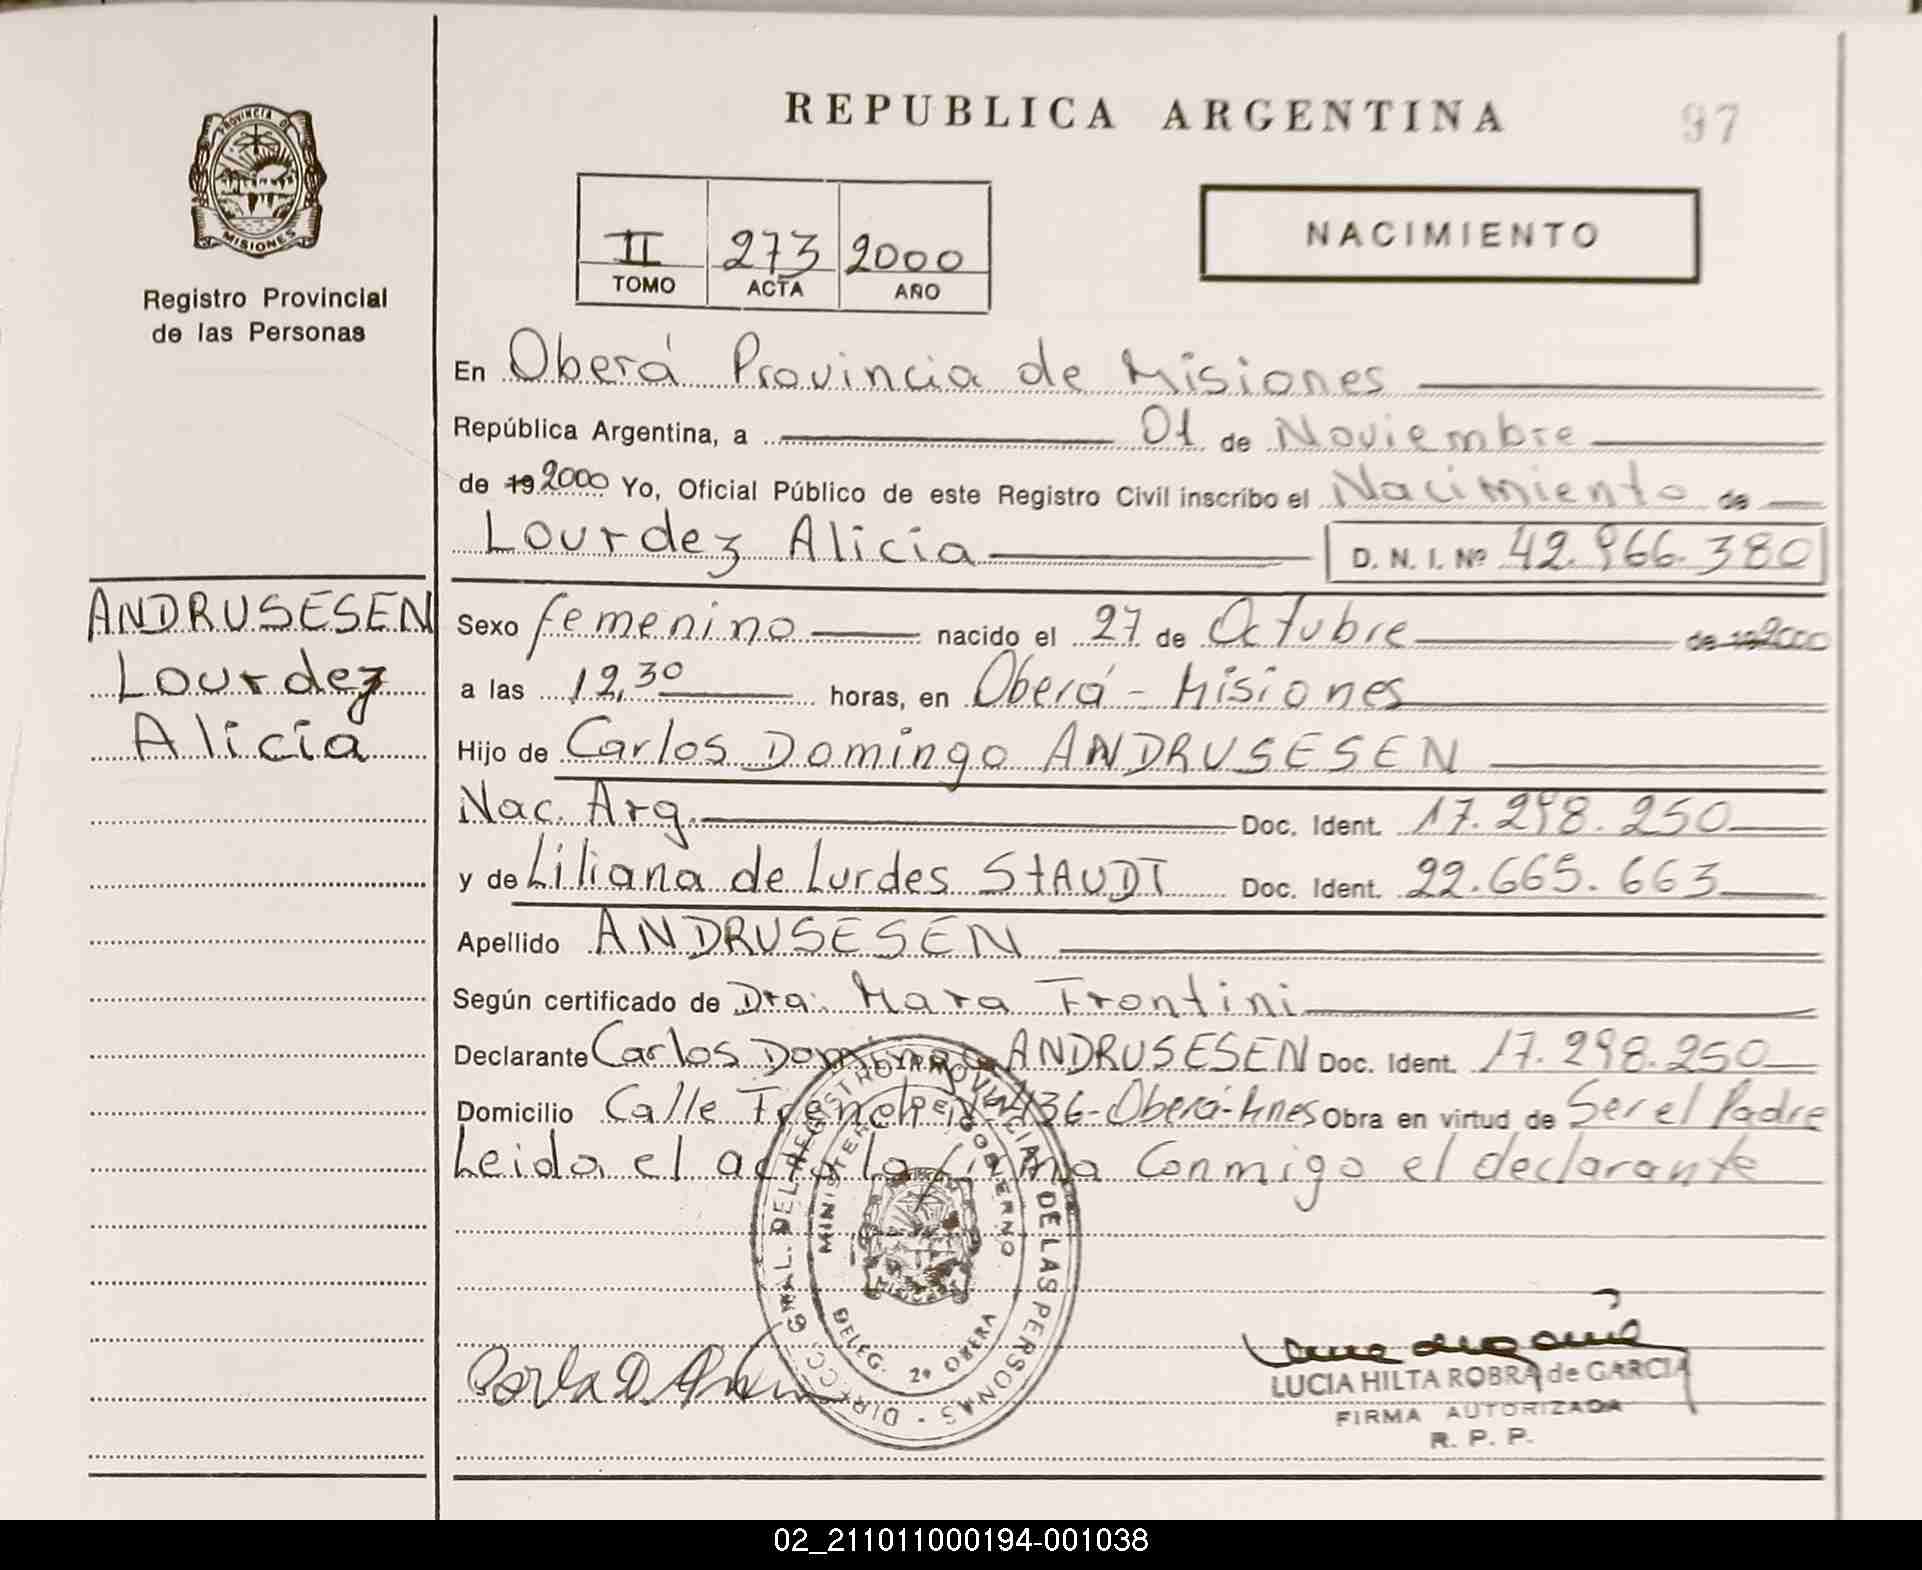 REPUBLICA ARGENTINA
97
PROVINCIA DE
MISIONES
Registro Provincial
de las Personas
II 273 2000
TOMO ACTA AÑO
NACIMIENTO
En Oberá Provincia de Misiones
República Argentina, a 01 de Noviembre
de 19 2000 Yo, Oficial Público de este Registro Civil inscribo el Nacimiento de
Lourdez Alicia D. N. I. Nº 42.966.380
ANDRUSESEN
Lourdez
Alicia
Sexo femenino nacido el 27 de Octubre de 19 2000
a las 12,30 horas, en Oberá - Misiones
Hijo de Carlos Domingo ANDRUSESEN
Nac. Arg. Doc. Ident. 17.298.250
y de Liliana de Lurdes StAUDT Doc. Ident. 22.665.663
Apellido ANDRUSESEN
Según certificado de Dra: Mara Frontini
Declarante Carlos Domingo ANDRUSESEN Doc. Ident. 17.298.250
Domicilio Calle 436-Oberá-Mnes Obra en virtud de Ser el Padre
Leida el acta la firma Conmigo el declarante
DIRECC. GRAL. DEL REGISTRO PROVINCIAL DE LAS PERSONAS
MINISTERIO DE GOBIERNO
DELEG. 2º OBERA
LUCIA HILTA ROBRA de GARCIA
FIRMA AUTORIZADA
R. P. P.
02_211011000194-001038